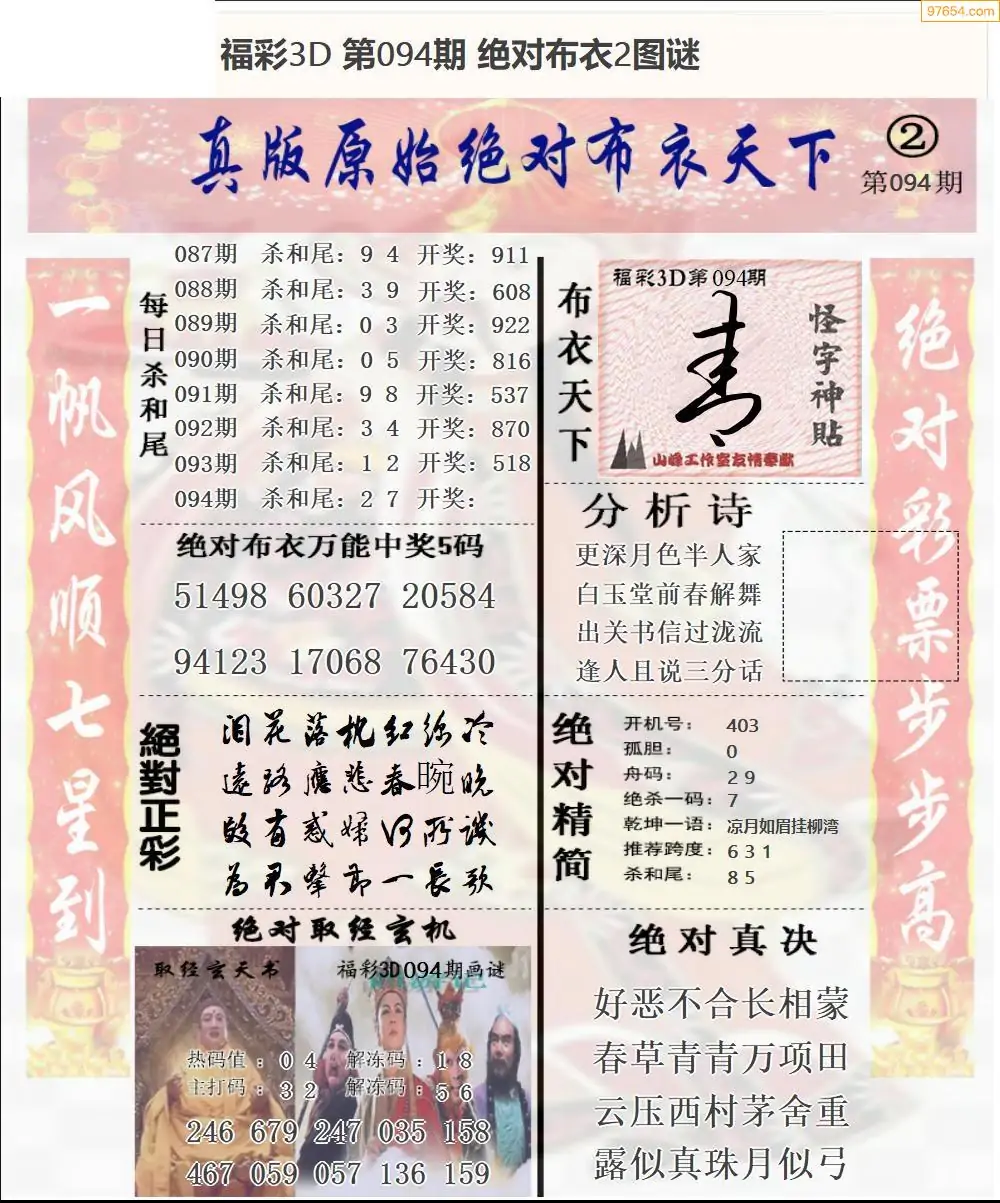 97654.com
福彩3D 第094期 绝对布衣2图谜
真版原始绝对布衣天下
②
第094期
一帆风顺七星到
每日杀和尾
087期 杀和尾：9 4 开奖：911
088期 杀和尾：3 9 开奖：608
089期 杀和尾：0 3 开奖：922
090期 杀和尾：0 5 开奖：816
091期 杀和尾：9 8 开奖：537
092期 杀和尾：3 4 开奖：870
093期 杀和尾：1 2 开奖：518
094期 杀和尾：2 7 开奖：
绝对布衣万能中奖5码
51498 60327 20584
94123 17068 76430
絕對正彩
泪花落枕红绵冷
遠路應悲春晼晚
故有惑婦何所談
為君擊節一長歌
绝对取经玄机
取经玄天书
福彩3D094期画谜
热码值：0 4 解冻码：1 8
主打码：3 2 解冻码：5 6
246 679 247 035 158
467 059 057 136 159
布衣天下
福彩3D第094期
怪字神貼
山峰工作室友情奉献
分析诗
更深月色半人家
白玉堂前春解舞
出关书信过泷流
逢人且说三分话
绝对精简
开机号： 403
孤胆： 0
舟码： 2 9
绝杀一码：7
乾坤一语：凉月如眉挂柳湾
推荐跨度：6 3 1
杀和尾： 8 5
绝对真决
好恶不合长相蒙
春草青青万项田
云压西村茅舍重
露似真珠月似弓
绝对彩票步步高